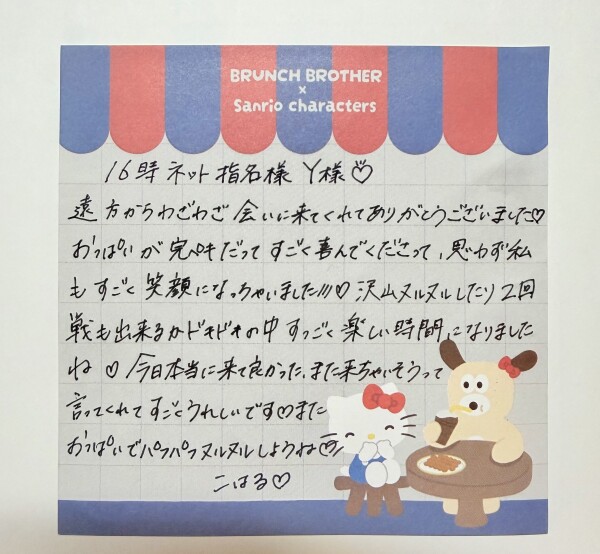 BRUNCH BROTHER
×
Sanrio characters
16時 ネット指名様 Y様♡
遠方からわざわざ会いに来てくれてありがとうございました♡
おっぱいが完ペキだってすごく喜んでくださって、思わず私
もすごく笑顔になっちゃいました///♡沢山ヌルヌルしたり2回
戦も出来るかドキドキの中すっごく楽しい時間になりました
ね♡今日本当に来て良かった、また来ちゃいそうって
言ってくれてすごくうれしいです♡また
おっぱいでパフパフヌルヌルしようね♡
こはる♡